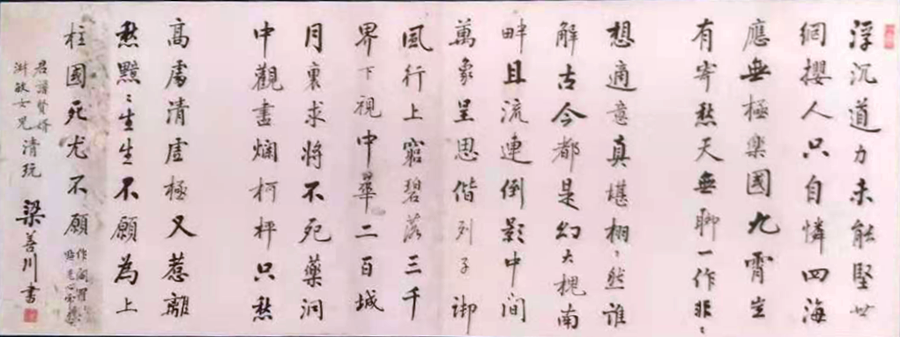 浮沉道力未能堅世
網攖人只自憐四海
應無極樂國九霄豈
有寄愁天無聊一作非々
想適意真堪栩々然誰
解古今都是幻大槐南
畔且流連倒影中間
萬象呈思偕列子御
風行上窮碧落三千
界下視中華二百城
月裏求將不死藥洞
中觀書爛柯枰只愁
高處清虛極又惹離
愁黯々生生不願為上
柱國死尤不願作閻羅
君譜賢婿
敏女兄清玩
梁善川書